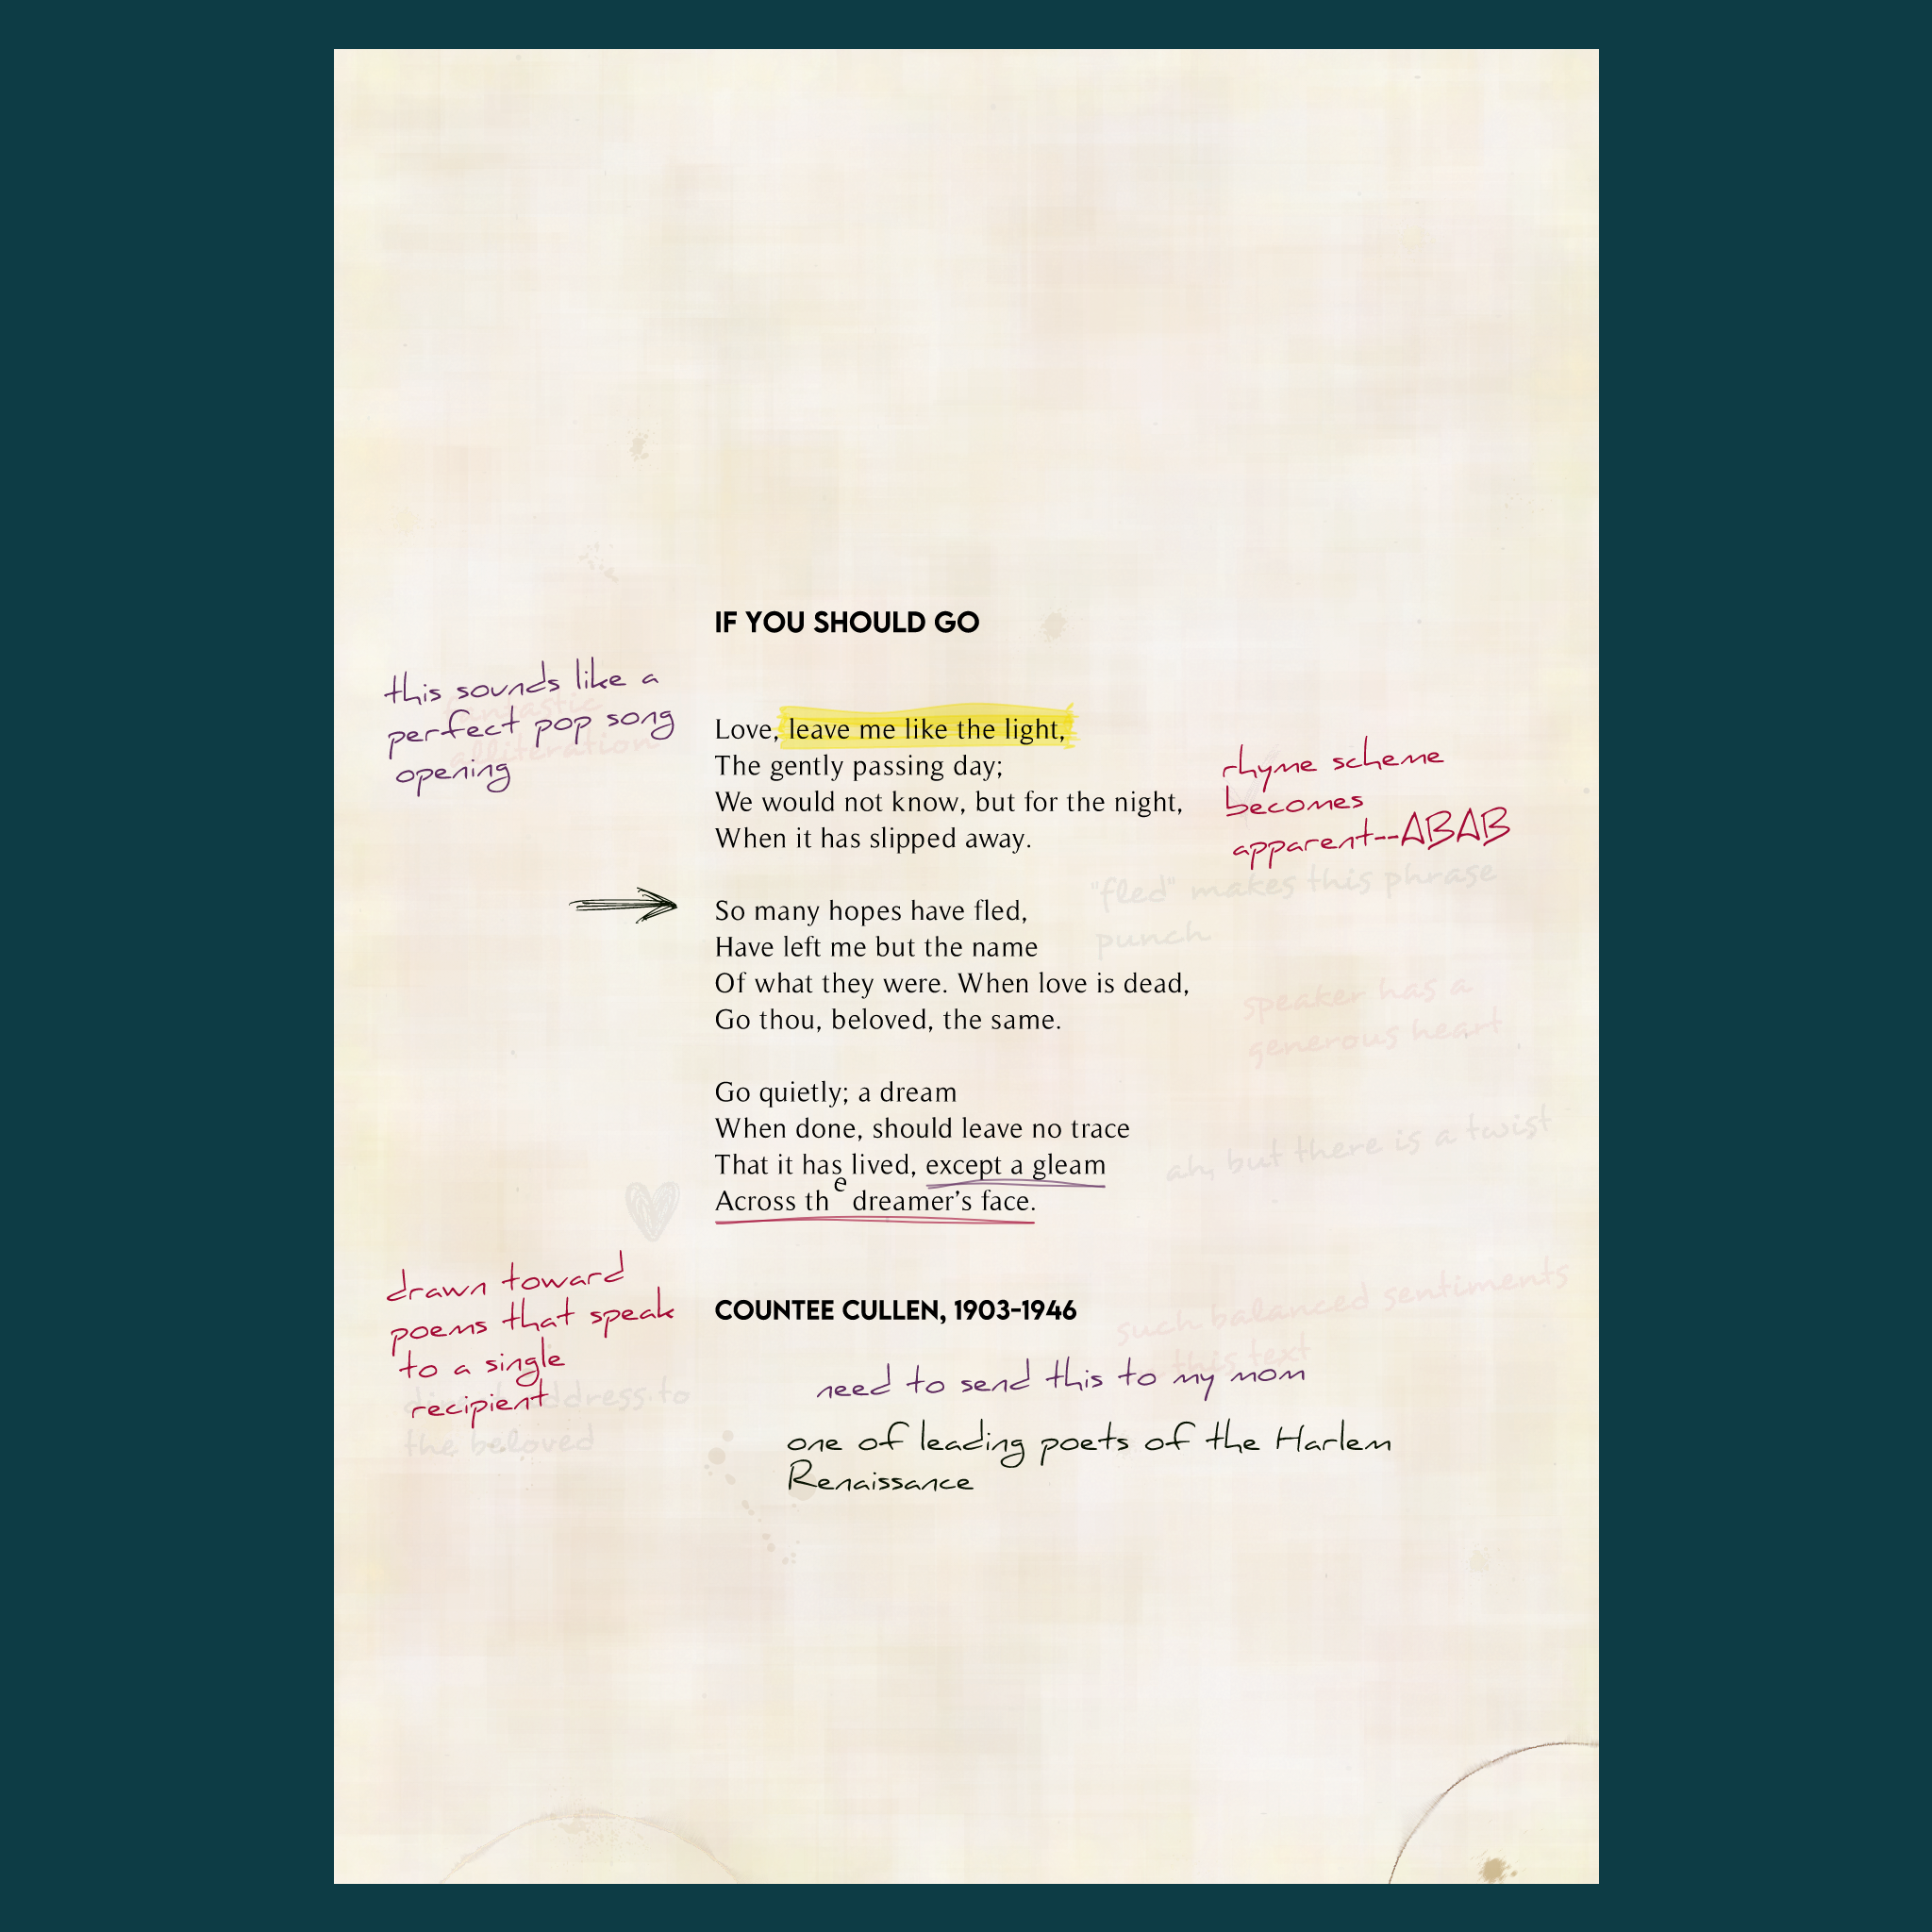 IF YOU SHOULD GO
this sounds like a
perfect pop song
opening
fantastic
alliteration
Love, leave me like the light,
The gently passing day;
We would not know, but for the night,
When it has slipped away.
rhyme scheme
becomes
apparent--ABAB
"fled" makes this phrase
punch
So many hopes have fled,
Have left me but the name
Of what they were. When love is dead,
Go thou, beloved, the same.
speaker has a
generous heart
Go quietly; a dream
When done, should leave no trace
That it has lived, except a gleam
Across the dreamer's face.
ah, but there is a twist
drawn toward
poems that speak
to a single
recipient
address to
the beloved
COUNTEE CULLEN, 1903-1946
such balanced sentiments
this text
need to send this to my mom
one of leading poets of the Harlem
Renaissance